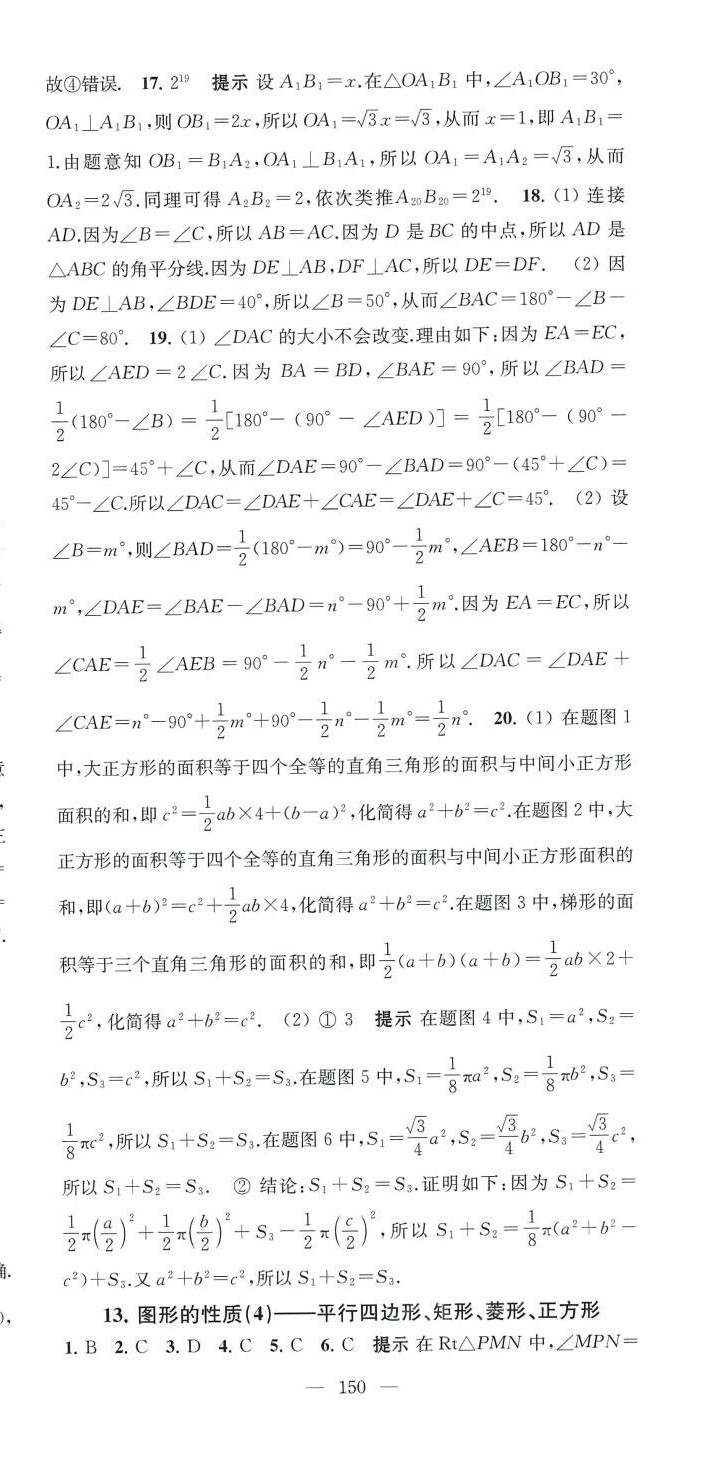 故④错误. 17. 2¹⁹ 提示 设 A₁B₁=x.在△OA₁B₁ 中,∠A₁OB₁=30°,
OA₁⊥A₁B₁,则 OB₁=2x,所以 OA₁=√3x=√3,从而 x=1,即 A₁B₁=
1.由题意知 OB₁=B₁A₂,OA₁⊥B₁A₁,所以 OA₁=A₁A₂=√3,从而
OA₂=2√3.同理可得 A₂B₂=2,依次类推A₂₀B₂₀=2¹⁹. 18. (1) 连接
AD.因为∠B=∠C,所以 AB=AC.因为 D 是 BC 的中点,所以 AD 是
△ABC 的角平分线.因为 DE⊥AB,DF⊥AC,所以 DE=DF. (2) 因
为 DE⊥AB,∠BDE=40°,所以∠B=50°,从而∠BAC=180°-∠B-
∠C=80°. 19. (1) ∠DAC 的大小不会改变.理由如下:因为 EA=EC,
所以∠AED=2∠C.因为 BA=BD,∠BAE=90°,所以∠BAD=
1/2(180°-∠B)=1/2[180°-(90°-∠AED)]=1/2[180°-(90°-
2∠C)]=45°+∠C,从而∠DAE=90°-∠BAD=90°-(45°+∠C)=
45°-∠C.所以∠DAC=∠DAE+∠CAE=∠DAE+∠C=45°. (2) 设
∠B=m°,则∠BAD=1/2(180°-m°)=90°-1/2m°,∠AEB=180°-n°-
m°,∠DAE=∠BAE-∠BAD=n°-90°+1/2m°.因为 EA=EC,所以
∠CAE=1/2∠AEB=90°-1/2n°-1/2m°.所以∠DAC=∠DAE+
∠CAE=n°-90°+1/2m°+90°-1/2n°-1/2m°=1/2n°. 20. (1) 在题图 1
中,大正方形的面积等于四个全等的直角三角形的面积与中间小正方形
面积的和,即 c²=1/2ab×4+(b-a)²,化简得 a²+b²=c².在题图 2 中,大
正方形的面积等于四个全等的直角三角形的面积与中间小正方形面积的
和,即(a+b)²=c²+1/2ab×4,化简得 a²+b²=c².在题图 3 中,梯形的面
积等于三个直角三角形的面积的和,即1/2(a+b)(a+b)=1/2ab×2+
1/2c²,化简得 a²+b²=c². (2) ① 3 提示 在题图 4 中,S₁=a²,S₂=
b²,S₃=c²,所以 S₁+S₂=S₃.在题图 5 中,S₁=1/8πa²,S₂=1/8πb²,S₃=
1/8πc²,所以 S₁+S₂=S₃.在题图 6 中,S₁=√3/4a²,S₂=√3/4b²,S₃=√3/4c²,
所以 S₁+S₂=S₃. ② 结论:S₁+S₂=S₃.证明如下:因为 S₁+S₂=
1/2π(a/2)²+1/2π(b/2)²+S₃-1/2π(c/2)²,所以 S₁+S₂=1/8π(a²+b²-
c²)+S₃.又 a²+b²=c²,所以 S₁+S₂=S₃.
13. 图形的性质(4)——平行四边形、矩形、菱形、正方形
1. B 2. C 3. D 4. C 5. C 6. C 提示 在 Rt△PMN 中,∠MPN=
— 150 —